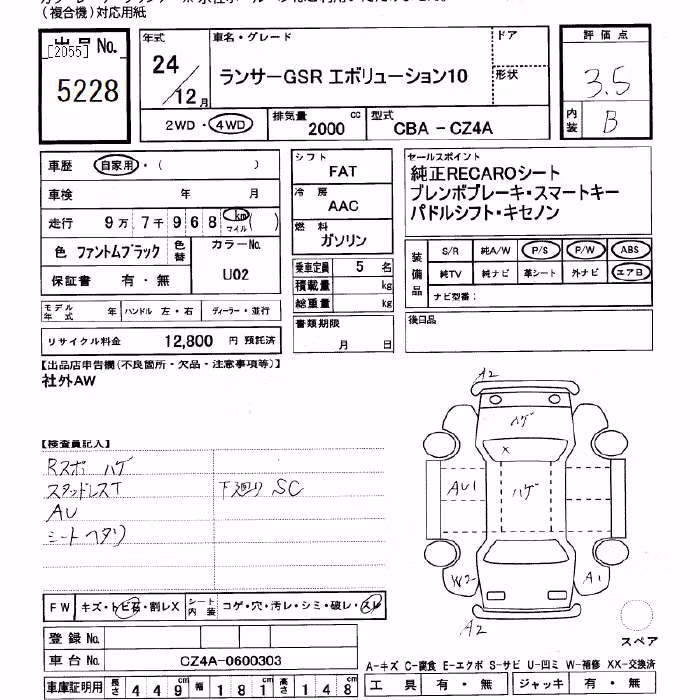 (複合機)対応用紙
出品No.
[2055]
5228
年式
24/12月
車名・グレード
ランサーGSR エボリューション10
ドア
形状
2WD・4WD
排気量
2000 cc
型式
CBA - CZ4A
評価点
3.5
内装
B
車歴 自家用・( )
車検 年 月
走行 9万 7千 9 6 8 km マイル ( )
色 ファントムブラック
色替
カラーNo.
U02
保証書 有・無
モデル年式 年 ハンドル 左・右 ディーラー・並行
リサイクル料金 12,800 円 預託済
シフト
FAT
冷房
AAC
燃料
ガソリン
乗車定員 5 名
積載量 kg
総重量 kg
書類期限
月 日
セールスポイント
純正RECAROシート
ブレンボブレーキ・スマートキー
パドルシフト・キセノン
装備品
S/R 純A/W P/S P/W ABS
純TV 純ナビ 革シート 外ナビ エアB
ナビ型番:
後日品
【出品店申告欄(不良箇所・欠品・注意事項等)】
社外AW
【検査員記入】
Rスポ ハゲ
スタッドレスT
下廻り SC
AU
シートヘタリ
A2
ハゲ
X
AU1
ハゲ
W2
A1
A2
スペア
FW キズ・トビ石・割レX
シート内装 コゲ・穴・汚レ・シミ・破レ・スレ
登録No.
車台No. CZ4A-0600303
車庫証明用 長さ 449 cm 幅 181 cm 高さ 148 cm
A-キズ C-腐食 E-エクボ S-サビ U-凹ミ W-補修 XX-交換済
工具 有・無 ジャッキ 有・無